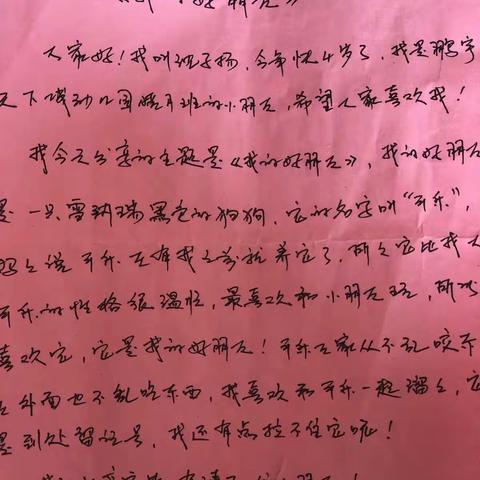 《我的好朋友》
大家好！我叫班子扬，今年快4岁了，我是鹏宇
天下博幼儿园皓月班的小朋友，希望大家喜欢我！
我今天分享的主题是《我的好朋友》，我的好朋友
是一只雪纳瑞黑色的狗狗，它的名字叫“乐乐”，
妈妈说乐乐在有我之前就养它了，所以它比我大
乐乐的性格很温顺，最喜欢和小朋友玩，所以
喜欢它，它是我的好朋友！乐乐在家从不乱咬东
在外面也不乱吃东西，我喜欢和乐乐一起遛，它
是到处留记号，我还有点拉不住它呢！